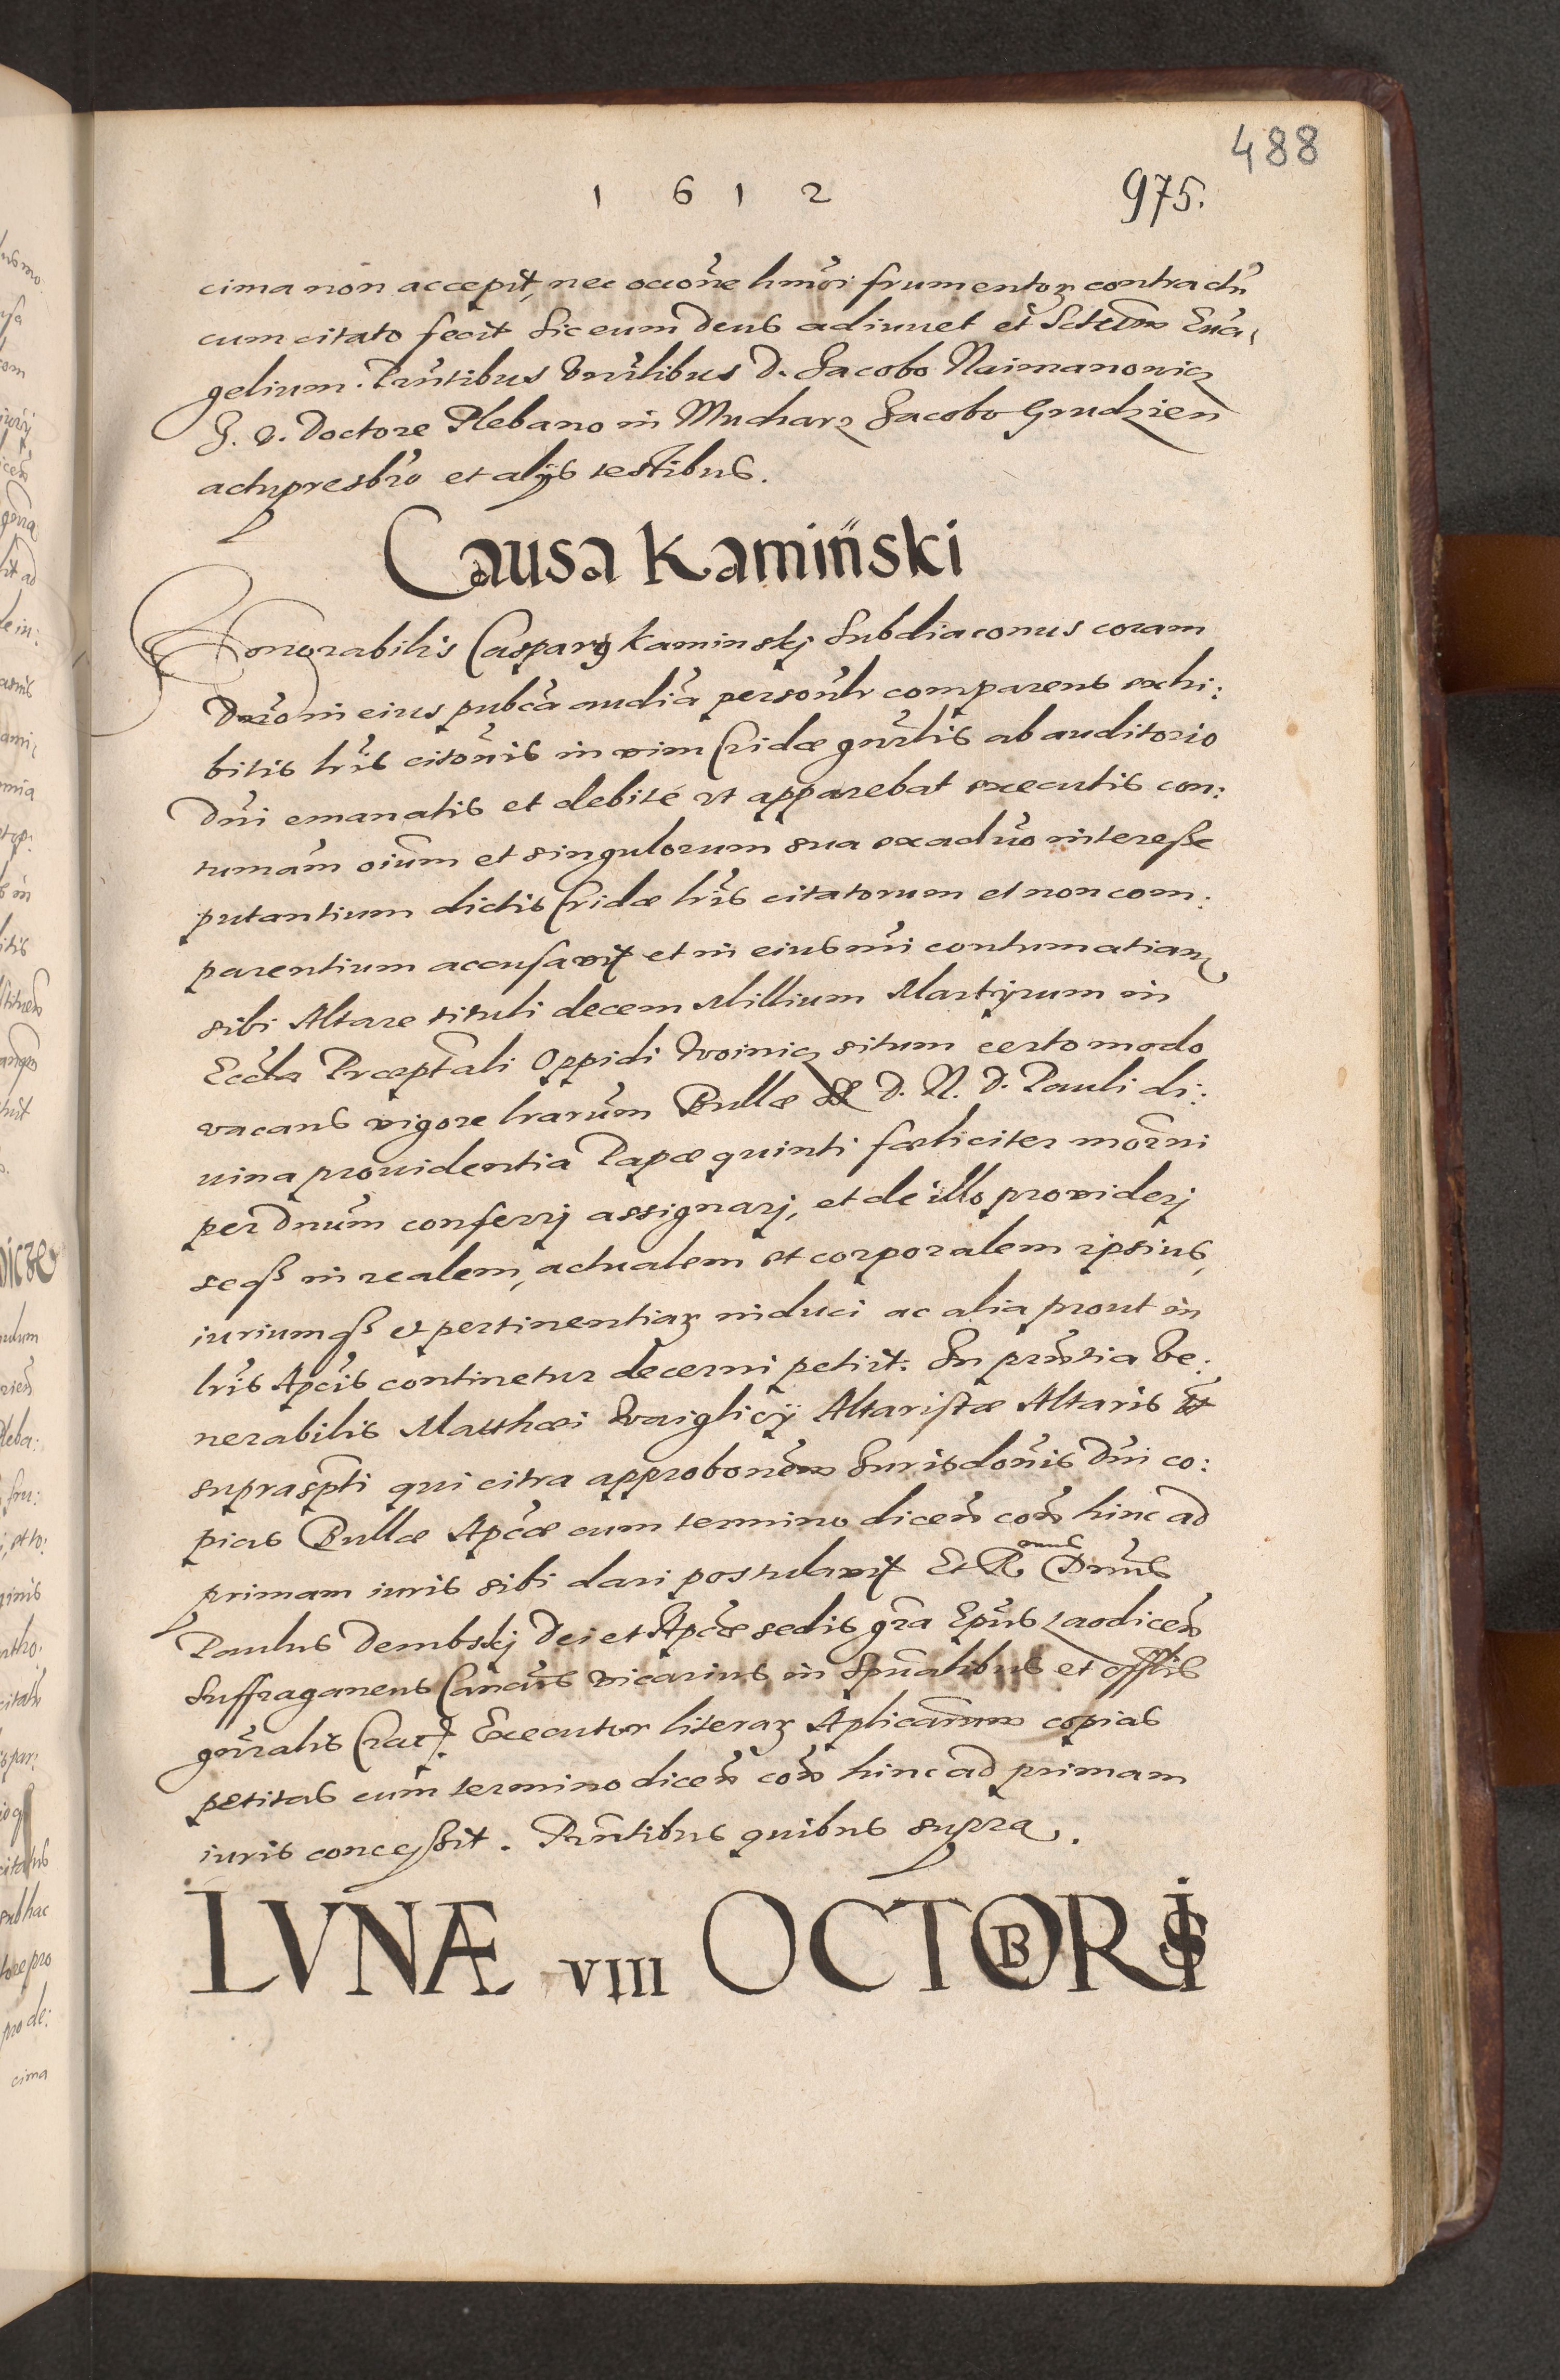 488
1 6 1 2
975.
cima non accepit, nec occone hmoi frumentoꝝ contractu
cum citato fecit Sic eum Deus adiuuet et Sctum Eua,
gelium. Pntibus Vnrlibus D. Jacobo Naimanowicz
J. V. Doctore Plebano in Mucharz Jacobo Grudzien
actupresbro et alijs testibus.
Causa Kamiński
Honorabilis Casparus Kaminskj Subdiaconus coram
Dno in eius publca audia personlr comparens exhi:
bitis lris citonis in vim Cridæ gnrlis ab auditorio
Dni emanatis et debité vt apparebat executis con:
tumam oium et singulorum sua ex aduo interesse
putantium dictis Cridæ lris citatorum et non com:
parentium accusavit et in eius mi contumatiam
sibi Altare tituli decem Millium Martyrum in
Eccla Præptali Oppidi Woinicz situm certo modo
vacans vigore lrarum Bullæ D. N. D. Pauli di:
uina prouidentia Papæ quinti fæliciter morni
per Dnum conferrj assignarj, et de illo prouiderj
seqꝫ in realem, actualem et corporalem ipsius,
iuriumqꝫ et pertinentiaꝝ induci ac alia prout in
lris Apcis continetur decerni petiit. In pntia Ve:
nerabilis Matthæi Waiglicÿ Altaristæ Altaris
suprascpti qui citra approbonem Jurisdonis Dni co:
pias Bullæ Apcæ cum termino dicen con hinc ad
primam iuris sibi dari postulavit Et R omus Dnus
Paulus Dembskj Dei et Apcæ sedis gra Epus Laodicen
Suffraganeus Cancus vicarius in Spualibus et offlis
gnralis Crac. Executor literaꝝ Aplicarum copias
petitas cum termino dicen con hinc ad primam
iuris concessit. Pntibus quibus supra.
LVNÆ VIII OCTOBRIS